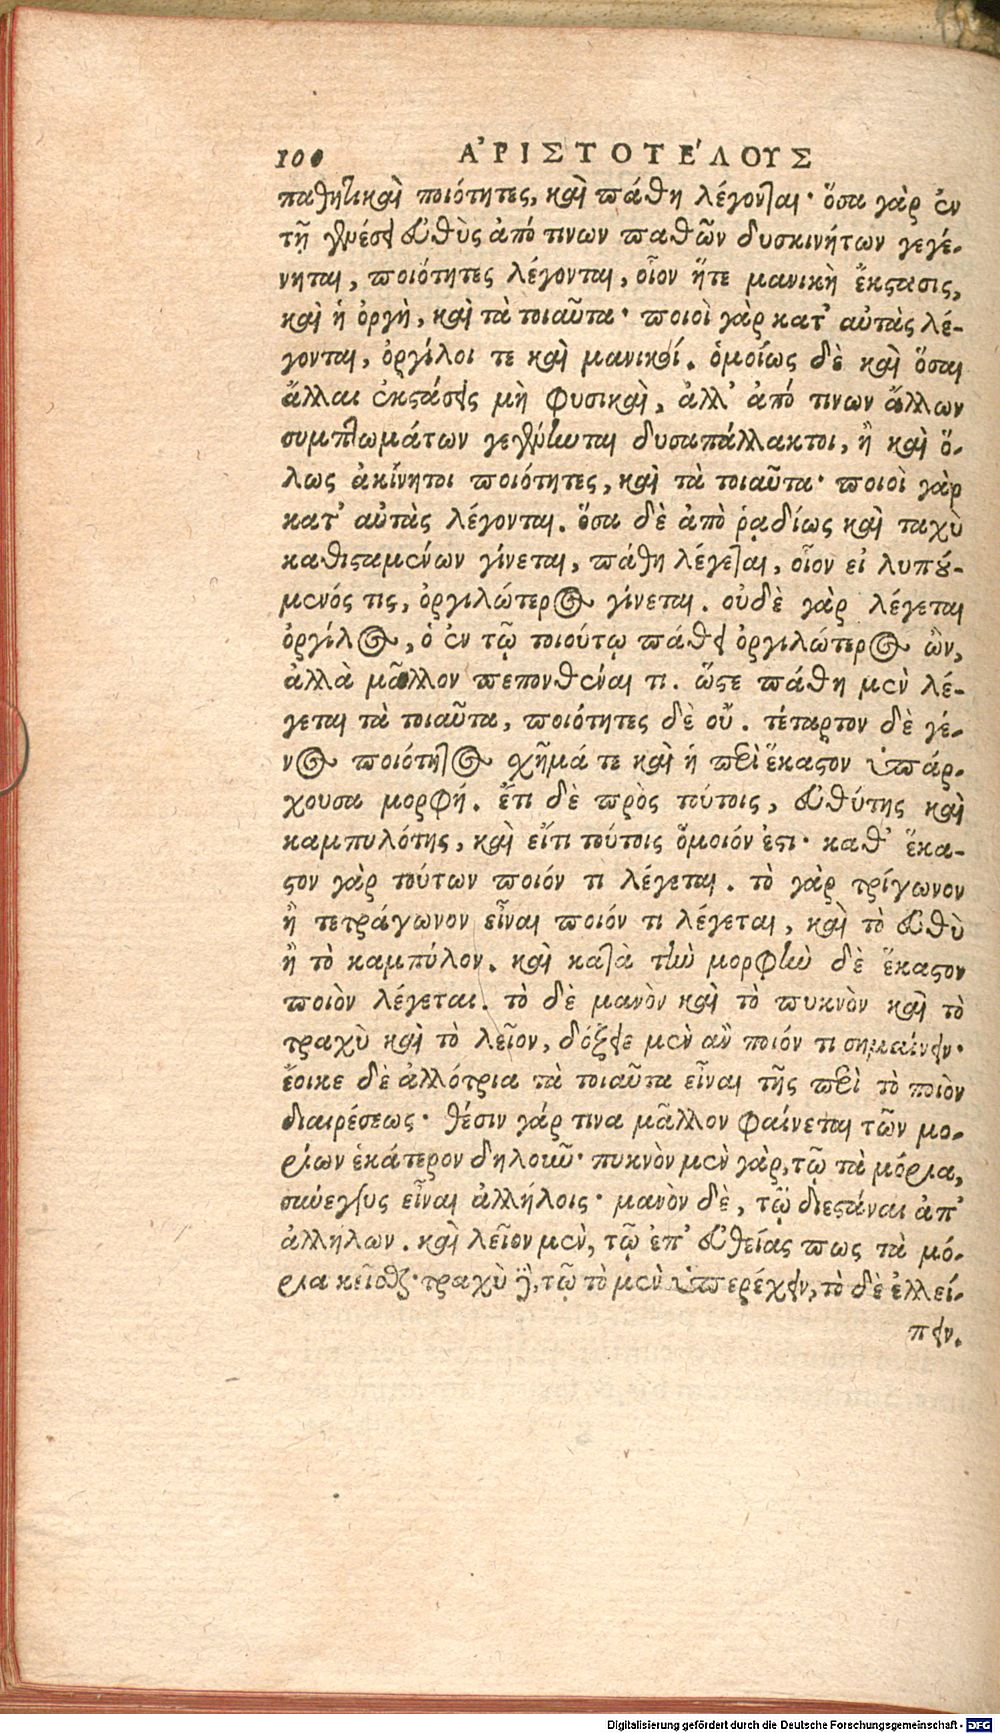 100 ΑʹΡΙΣΤΟΤΕʹΛΟΥΣ
παθητικαὶ ποιότητες, καὶ πάθη λέγονται· ὅσα γὰρ ἐν
τῇ γενέσει εὐθὺς ἀπό τινων παθῶν δυσκινήτων γεγέ-
νηται, ποιότητες λέγονται, οἷον ἥτε μανικὴ ἔκστασις,
καὶ ἡ ὀργὴ, καὶ τὰ τοιαῦτα· ποιοὶ γὰρ κατ' αὐτὰς λέ-
γονται, ὀργίλοι τε καὶ μανικοί. ὁμοίως δὲ καὶ ὅσαι
ἄλλαι ἐκστάσεις μὴ φυσικαὶ, ἀλλ' ἀπό τινων ἄλλων
συμπτωμάτων γεγένηνται δυσαπάλλακτοι, ἢ καὶ ὅ-
λως ἀκίνητοι ποιότητες, καὶ τὰ τοιαῦτα· ποιοὶ γὰρ
κατ' αὐτὰς λέγονται. ὅσα δὲ ἀπὸ ῥαδίως καὶ ταχὺ
καθισταμένων γίνεται, πάθη λέγεται, οἷον εἰ λυπού-
μενός τις, ὀργιλώτερος γίνεται. οὐδὲ γὰρ λέγεται
ὀργίλος, ὁ ἐν τῷ τοιούτῳ πάθει ὀργιλώτερος ὢν,
ἀλλὰ μᾶλλον πεπονθέναι τι. ὥστε πάθη μὲν λέ-
γεται τὰ τοιαῦτα, ποιότητες δὲ οὔ. τέταρτον δὲ γέ-
νος ποιότητος σχῆμά τε καὶ ἡ περὶ ἕκαστον ὑπάρ-
χουσα μορφή. ἔτι δὲ πρὸς τούτοις, εὐθύτης καὶ
καμπυλότης, καὶ εἴτι τούτοις ὅμοιόν ἐστι· καθ' ἕκα-
στον γὰρ τούτων ποιόν τι λέγεται. τὸ γὰρ τρίγωνον
ἢ τετράγωνον εἶναι ποιόν τι λέγεται, καὶ τὸ εὐθὺ
ἢ τὸ καμπύλον. καὶ κατὰ τὴν μορφὴν δὲ ἕκαστον
ποιὸν λέγεται. τὸ δὲ μανὸν καὶ τὸ πυκνὸν καὶ τὸ
τραχὺ καὶ τὸ λεῖον, δόξειε μὲν ἂν ποιόν τι σημαίνειν·
ἔοικε δὲ ἀλλότρια τὰ τοιαῦτα εἶναι τῆς περὶ τὸ ποιὸν
διαιρέσεως· θέσιν γάρ τινα μᾶλλον φαίνεται τῶν μο-
ρίων ἑκάτερον δηλοῦν· πυκνὸν μὲν γὰρ, τῷ τὰ μόρια,
σύνεγγυς εἶναι ἀλλήλοις· μανὸν δὲ, τῷ διεστάναι ἀπ'
ἀλλήλων. καὶ λεῖον μὲν, τῷ ἐπ' εὐθείας πως τὰ μό-
ρια κεῖσθαι· τραχὺ δὲ, τῷ τὸ μὲν ὑπερέχειν, τὸ δὲ ἐλλεί-
πειν.
Digitalisierung gefördert durch die Deutsche Forschungsgemeinschaft - DFG